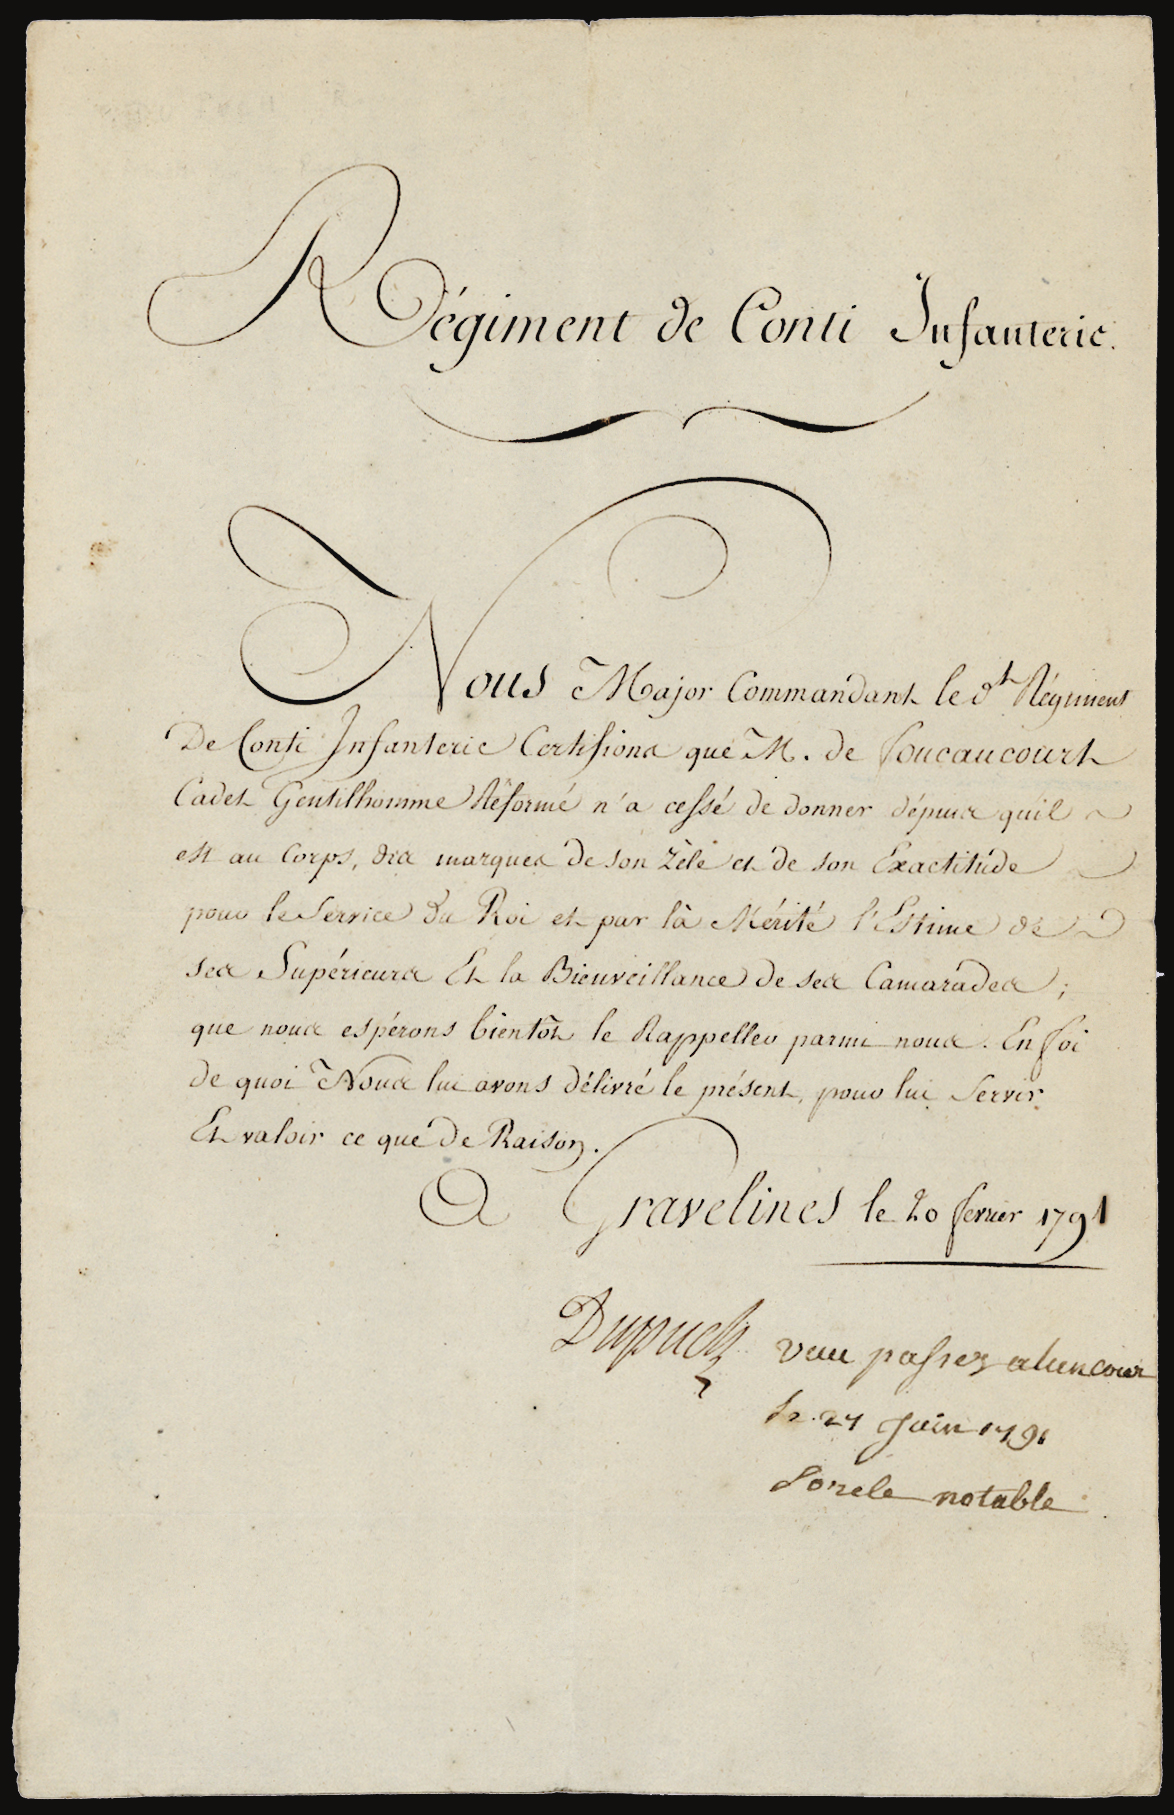 Régiment de Conti Infanterie.
Nous Major Commandant le dt Régiment
De Conti Infanterie Certifions que M. de foucaucourt
Cadet Gentilhomme Réformé n'a cessé de donner dépuis qu'il
est au Corps, des marques de son Zèle et de son Exactitude
pour le Service du Roi et par là Mérité l'Estime de
ses Supérieurs Et la Bienveillance de ses Camarades ;
que nous espérons bientôt le Rappeller parmi nous. En foi
de quoi Nous lui avons délivré le présent, pour lui Servir
Et valoir ce que de Raison.
A Gravelines le 20 fevrier 1791
Dupuch
veu passer
le 27 Juin 1791
notable